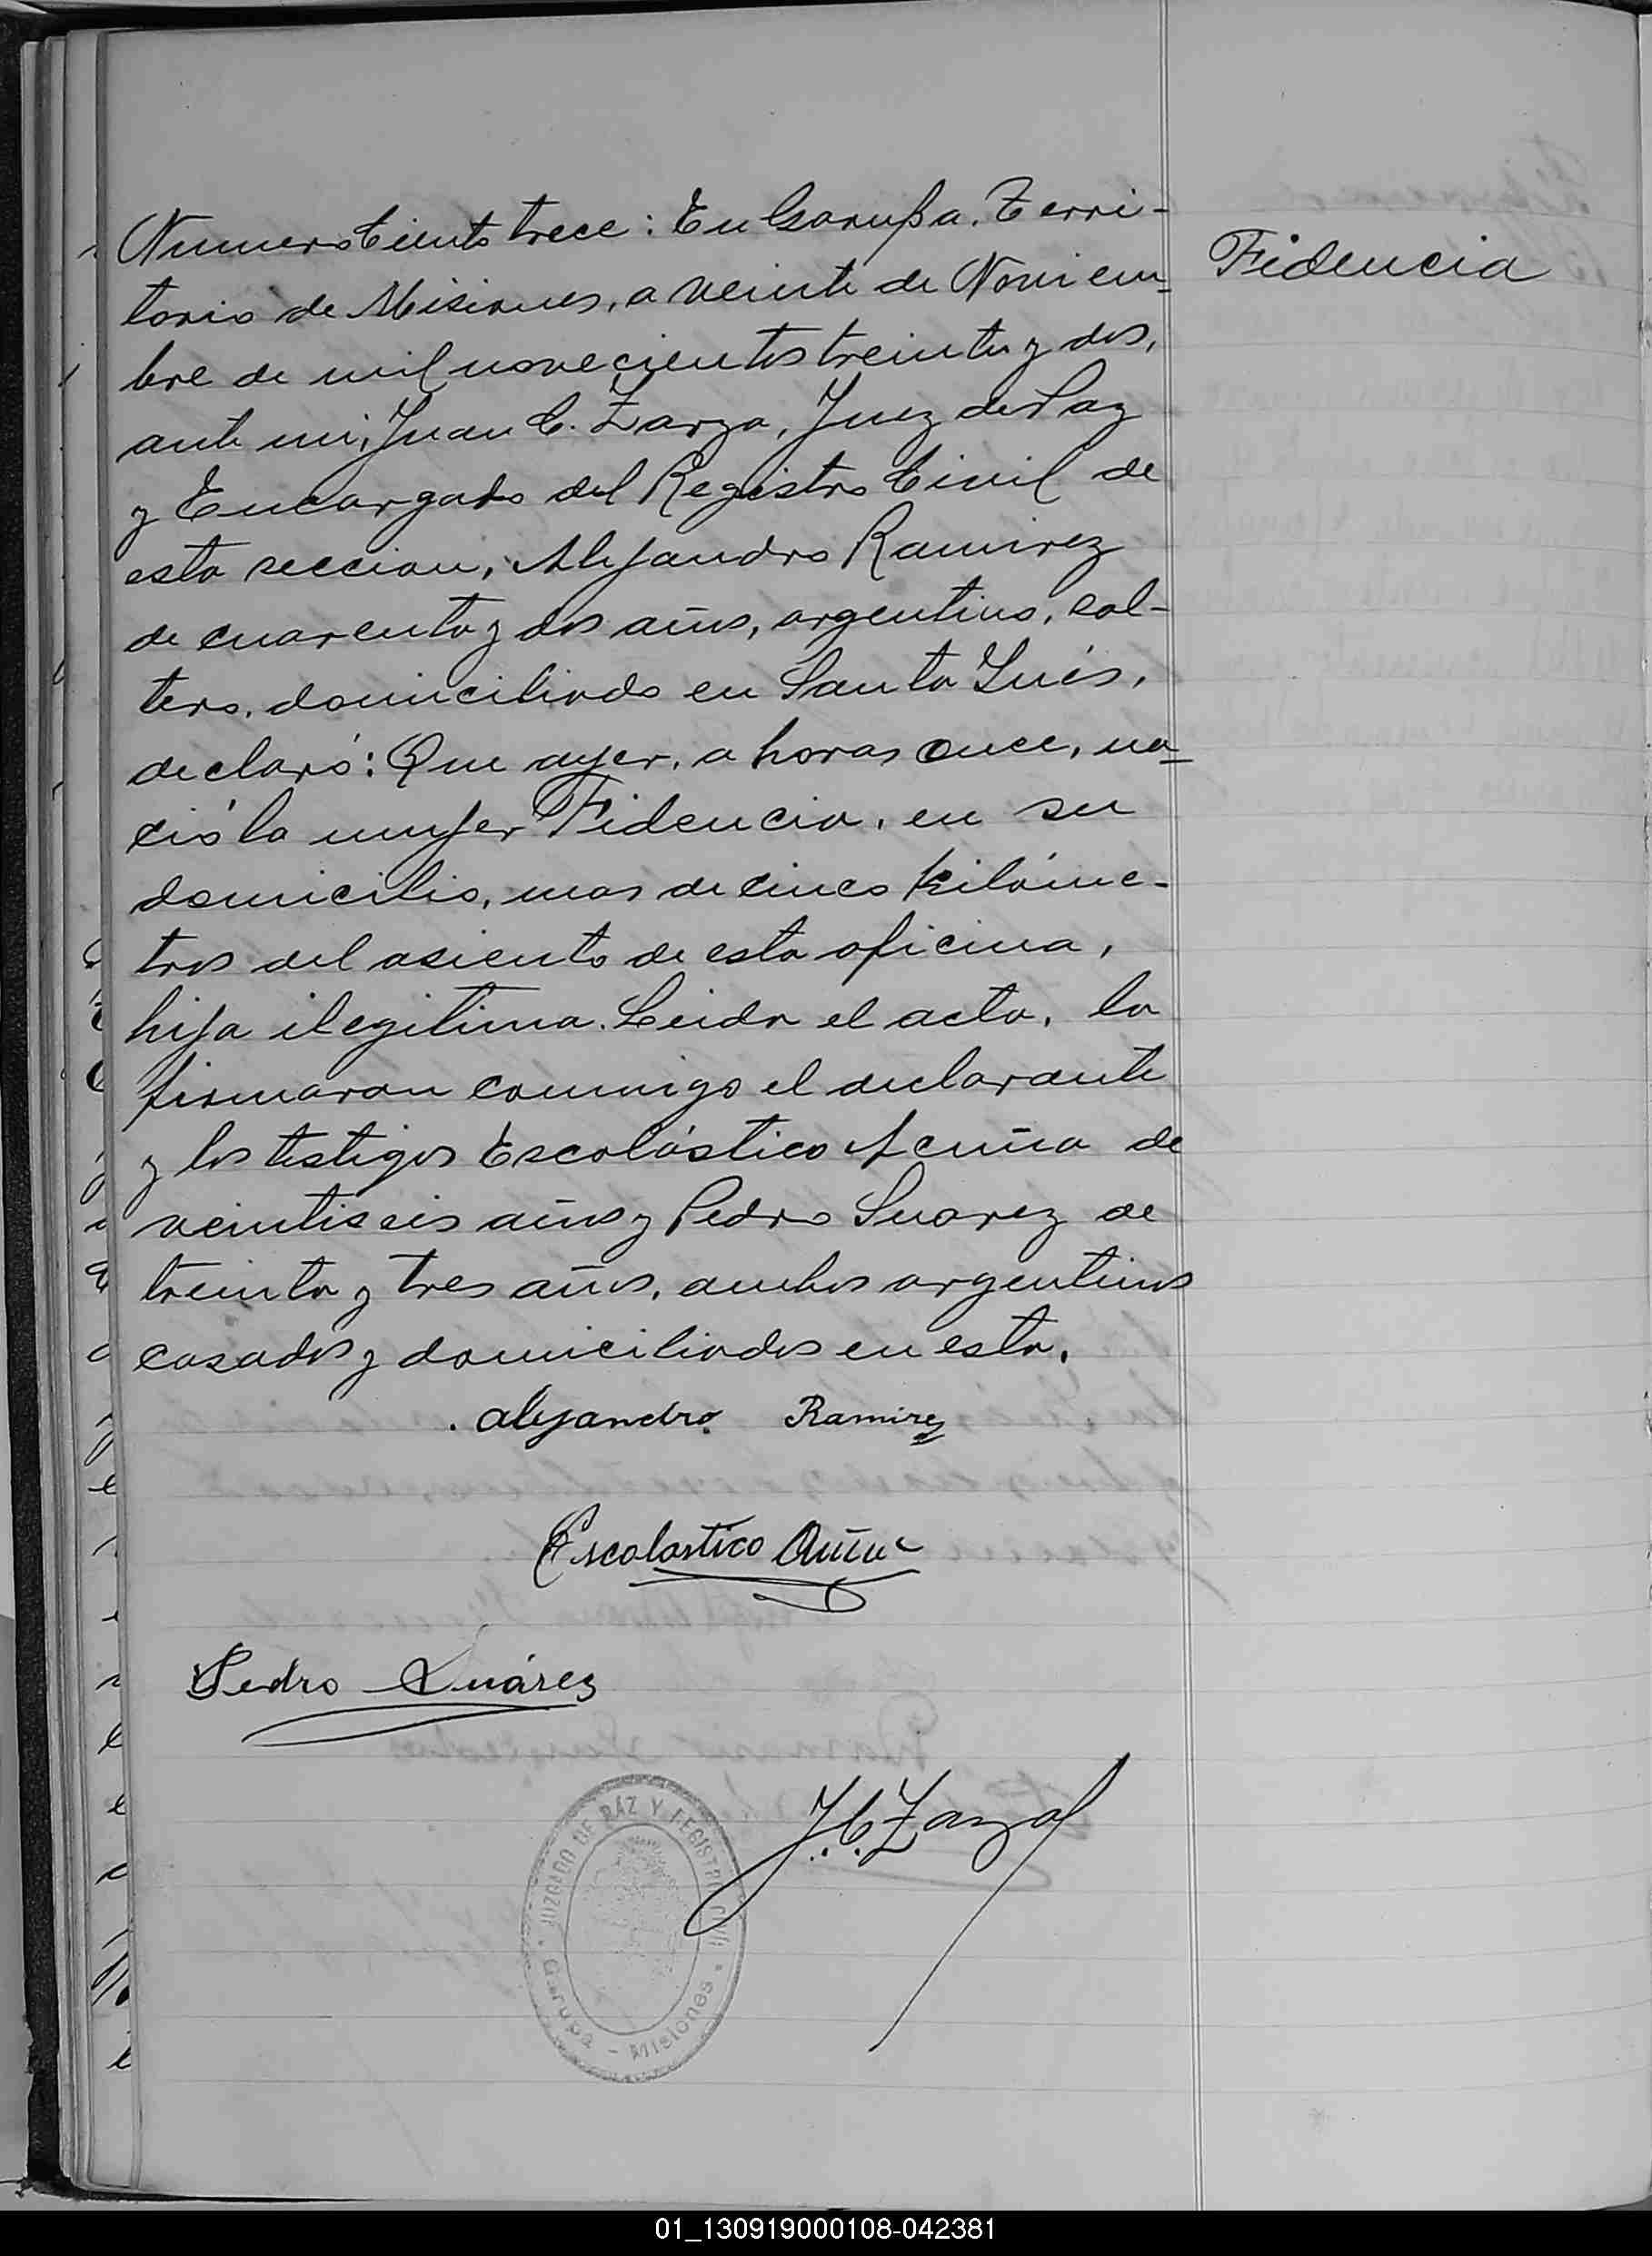 Numero Ciento trece: En Garupa. Terri-
torio de Misiones, a veinte de Noviem-
bre de mil novecientos treinta y dos,
ante mi, Juan C. Zarza, Juez de Paz
y Encargado del Registro Civil de
esta seccion, Alejandro Ramirez
de cuarenta y dos años, argentino, sol-
tero, domiciliado en Santa Inés,
declaró: Que ayer, a horas once, na-
ció la mujer Fidencia, en su
domicilio, mas de cinco kilóme-
tros del asiento de esta oficina,
hija ilegitima. Leida el acta, la
firmaron conmigo el declarante
y los testigos Escolástico Acuña de
veintiseis años y Pedro Suarez de
treinta y tres años, ambos argentinos
casados y domiciliados en esta.
Fidencia
Alejandro Ramirez
Escolastico Acuña
Pedro Suárez
J. C. Zarza
JUZGADO DE PAZ Y REGISTRO CIVIL
Garupa - Misiones
01_130919000108-042381